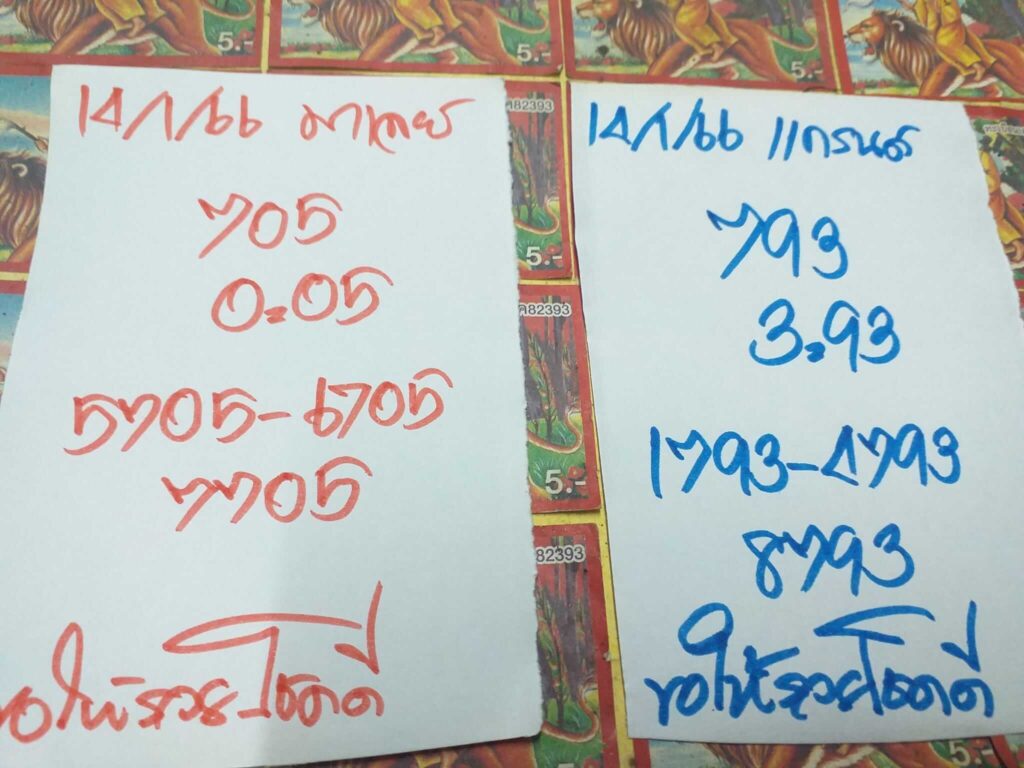 14/1/66 มาเลย์
705
0=05
5705-6705
7705
ขอให้รวยโชคดี
14/1/66 แกรนด์
793
3=93
1793-4793
8793
ขอให้รวยโชคดี
5.-
5.-
5.-
82393
5.-
82393
5.-
82393
5.-